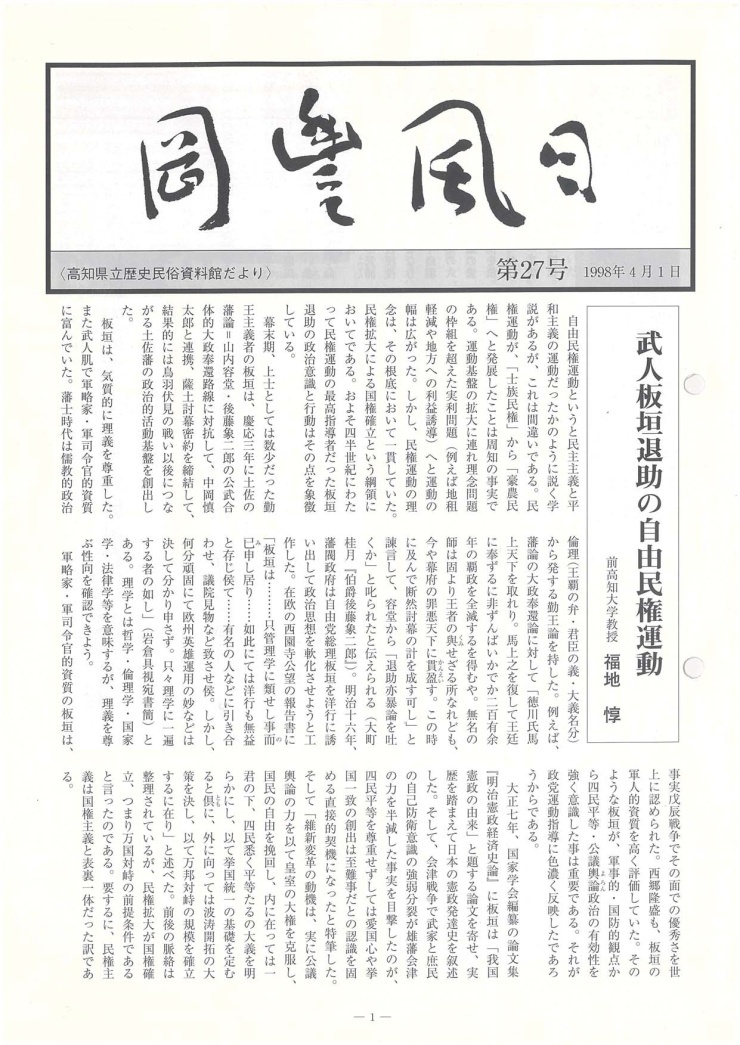 岡豊風日
〈高知県立歴史民俗資料館だより〉
第27号 1998年4月1日
武人板垣退助の自由民権運動
前高知大学教授 福地 惇
自由民権運動というと民主主義と平
和主義の運動だったかのように説く学
説があるが、これは間違いである。民
権運動が、「士族民権」から「豪農民
権」へと発展したことは周知の事実で
ある。運動基盤の拡大に連れ理念問題
の枠組を超えた実利問題（例えば地租
軽減や地方への利益誘導）へと運動の
幅は広がった。しかし、民権運動の理
念は、その根底において一貫していた。
民権拡大による国権確立という綱領に
おいてである。およそ四半世紀にわた
って民権運動の最高指導者だった板垣
退助の政治意識と行動はその点を象徴
している。
幕末期、上士としては数少だった勤
王主義者の板垣は、慶応三年に土佐の
藩論＝山内容堂・後藤象二郎の公武合
体的大政奉還路線に対抗して、中岡慎
太郎と連携、薩土討幕密約を締結して、
結果的には鳥羽伏見の戦い以後につな
がる土佐藩の政治的活動基盤を創出し
た。
板垣は、気質的に理義を尊重した。
また武人肌で軍略家・軍司令官的資質
に富んでいた。藩士時代は儒教的政治
倫理（王覇の弁・君臣の義・大義名分）
から発する勤王論を持した。例えば、
藩論の大政奉還論に対して「徳川氏馬
上天下を取れり。馬上之を復して王廷
に奉ずるに非ずんばいかでか二百有余
年の覇政を全滅するを得むや。無名の
師は固より王者の与せざる所なれども、
今や幕府の罪悪天下に貫盈す。この時
かんえい
に及んで断然討幕の計を成す可し」と
諫言して、容堂から「退助亦暴論を吐
くか」と叱られたと伝えられる（大町
桂月『伯爵後藤象二郎』）。明治十六年、
藩閥政府は自由党総理板垣を洋行に誘
い出して政治思想を軟化させようと工
作した。在欧の西園寺公望の報告書に
「板垣は………只管理学に類せし事而
の
已申し居り……如此にては洋行も無益
み
と存じ侯て……有名の人などに引き合
わせ、議院見物など致させ侯。しかし、
何分頑固にて欧州英雄運用の妙などは
決して分かり申さず。只々理学に一遍
する者の如し」（岩倉具視宛書簡）と
ある。理学とは哲学・倫理学・国家
学・法律学等を意味するが、理義を尊
ぶ性向を確認できよう。
軍略家・軍司令官的資質の板垣は、
事実戊辰戦争でその面での優秀さを世
上に認められた。西郷隆盛も、板垣の
軍人的資質を高く評価していた。その
ような板垣が、軍事的・国防的観点か
ら四民平等・公議輿論政治の有効性を
よろん
強く意識した事は重要である。それが
政党運動指導に色濃く反映したであろ
うからである。
大正七年、国家学会編纂の論文集
『明治憲政経済史論』に板垣は「我国
憲政の由来」と題する論文を寄せ、実
歴を踏まえて日本の憲政発達史を叙述
した。そして、会津戦争で武家と庶民
の自己防衛意識の強弱分裂が雄藩会津
の力を半減した事実を目撃したのが、
四民平等を尊重せずしては愛国心や挙
国一致の創出は至難事だとの認識を固
める直接的契機になったと特筆した。
そして「維新変革の動機は、実に公議
輿論の力を以て皇室の大権を克服し、
国民の自由を挽回し、内に在っては一
君の下、四民悉く平等たるの大義を明
らかにし、以て挙国統一の基礎を定む
ると倶に、外に向っては波涛開拓の大
とも
策を決し、以て万邦対峙の規模を確立
するに在り」と述べた。前後の脈絡は
整理されているが、民権拡大が国権確
立、つまり万国対峙の前提条件である
と言ったのである。要するに、民権主
義は国権主義と表裏一体だった訳であ
る。
— 1 —